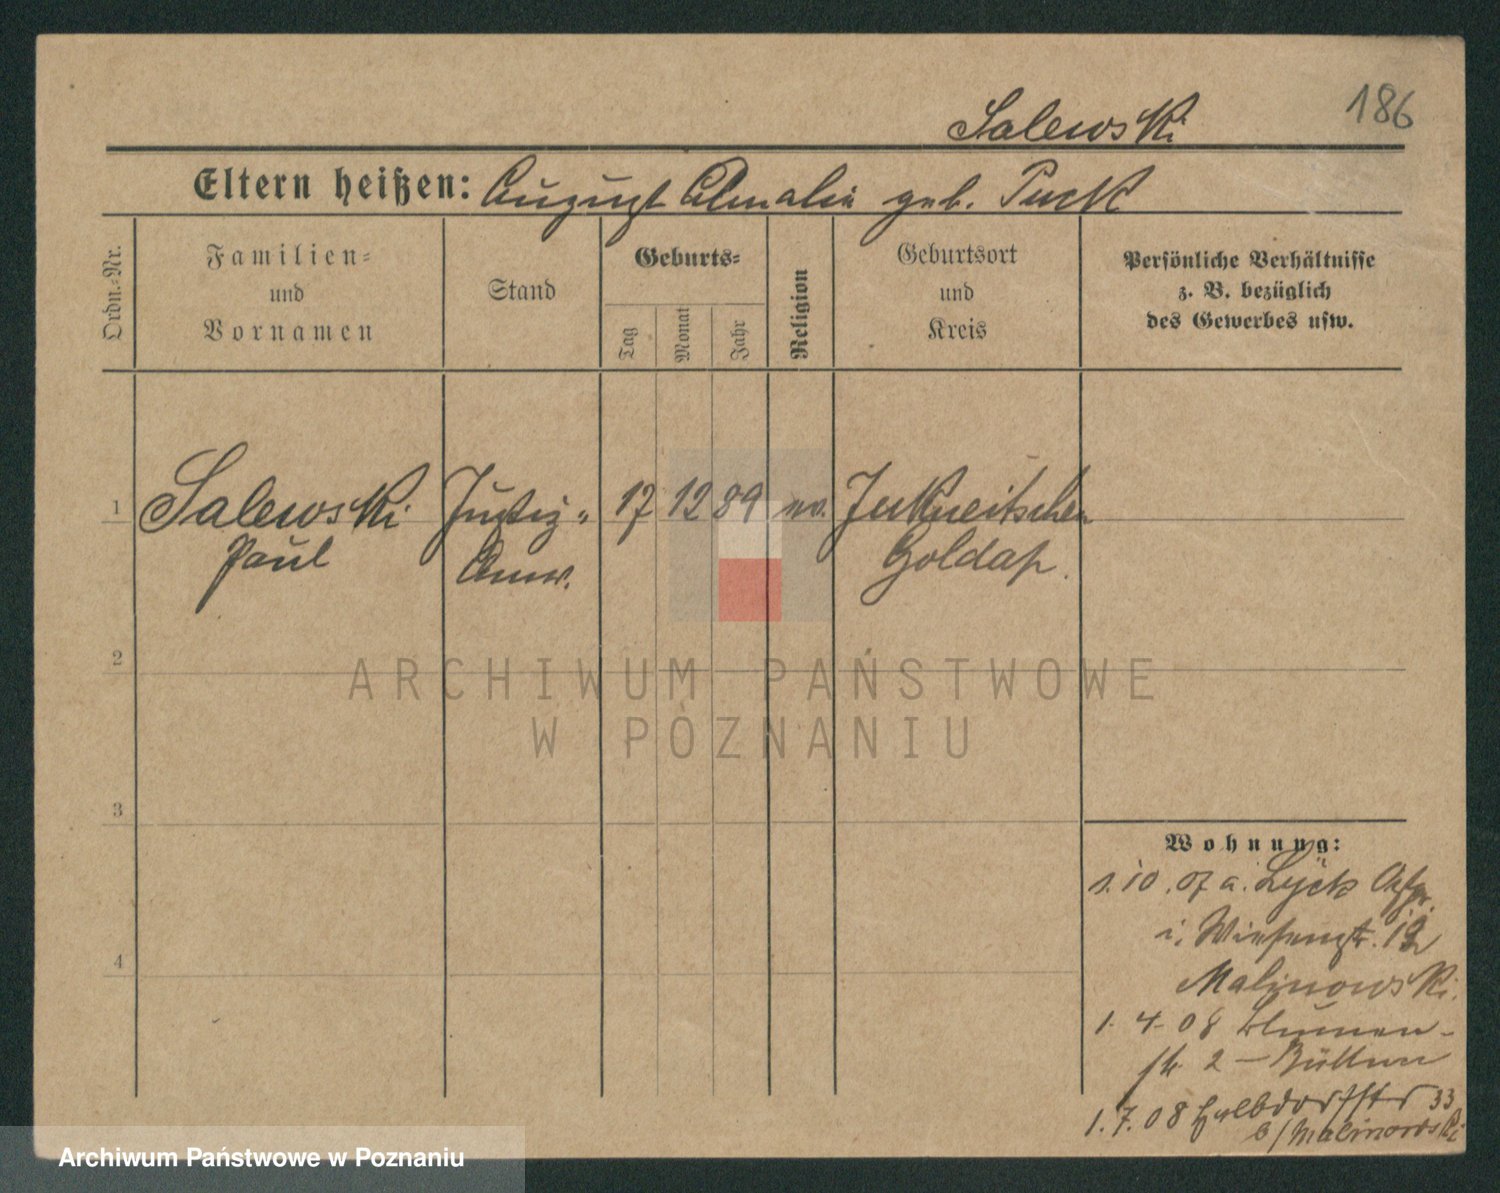 186
Salewski
Eltern heißen: August Amalie geb. Puck
Ordn.-Nr.
Familien-
und
Vornamen
Stand
Geburts-
Tag
Monat
Jahr
Religion
Geburtsort
und
Kreis
Persönliche Verhältnisse
z. B. bezüglich
des Gewerbes usw.
1 Salewski Justiz- 17 12 89 ev. Jukneitschen
Paul Anw. Goldap.
2
ARCHIWUM PAŃSTWOWE
W POZNANIU
3
Wohnung:
1.10.07 a. Lyck
i. Wiesenstr.
4
Malinowski.
1.4.08 Blumen-
str. 2 — Büttner
1.7.08 Halbdorfstr 33
b/Malinowski
Archiwum Państwowe w Poznaniu